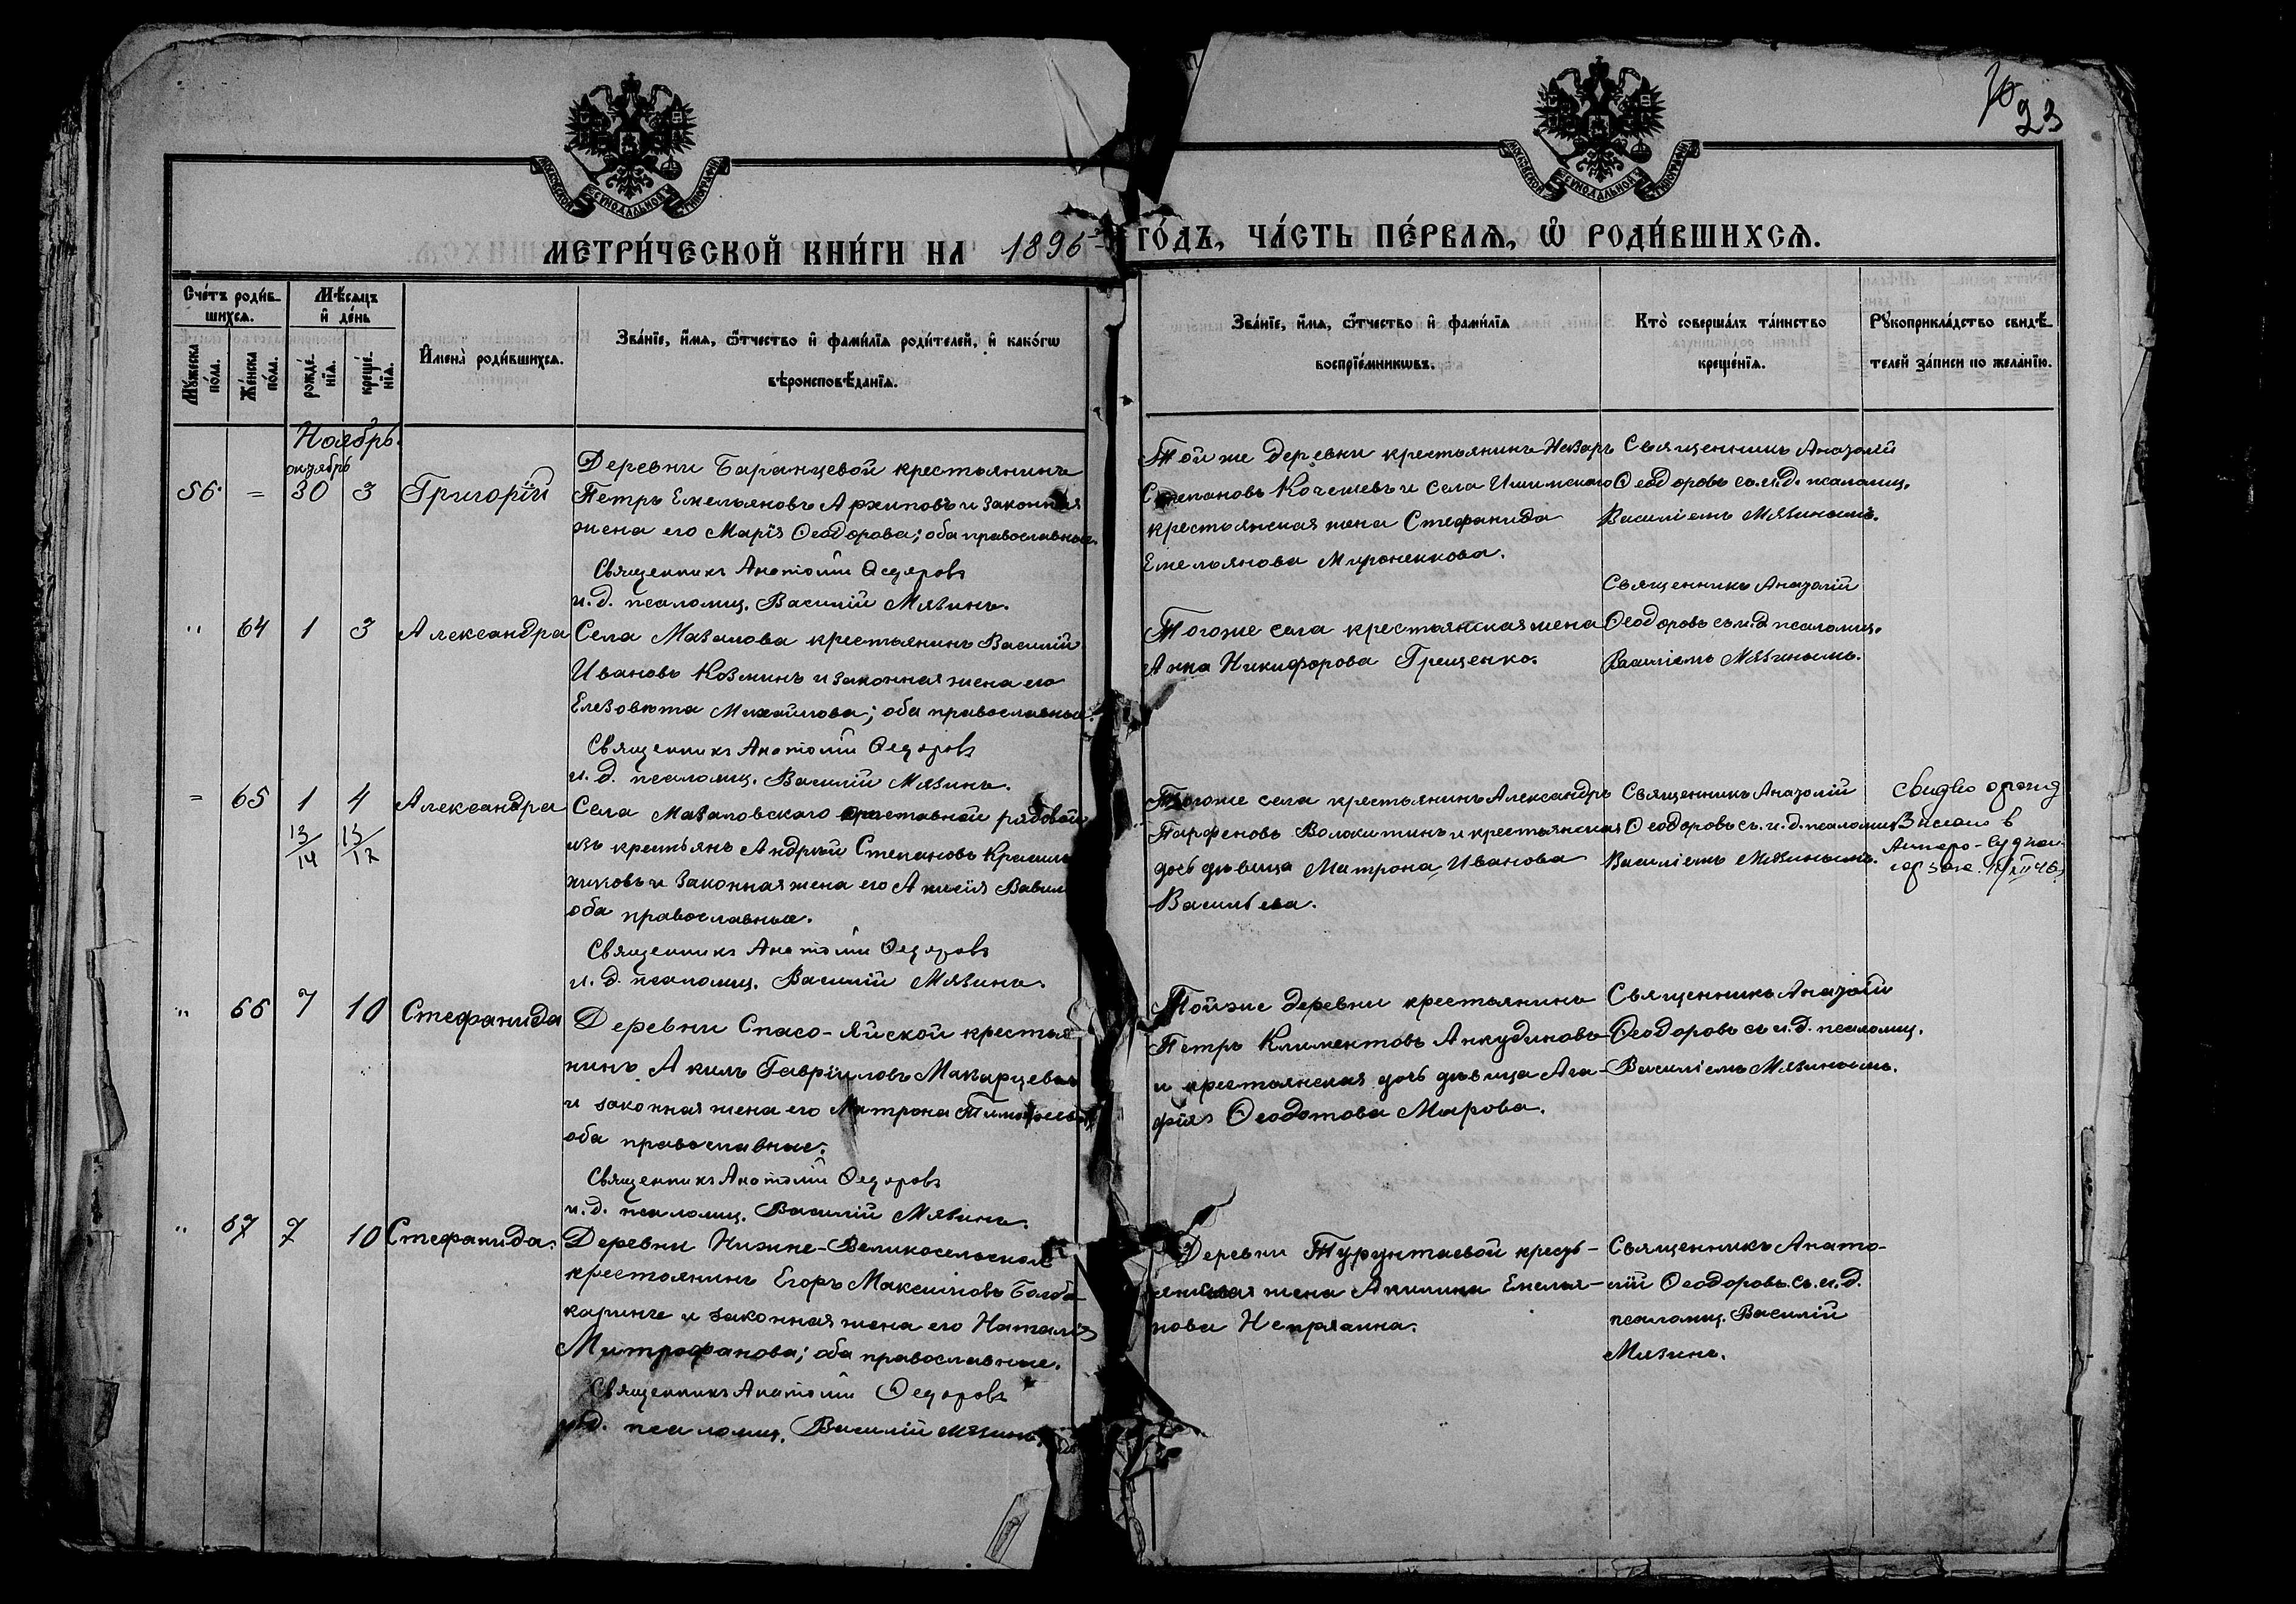 23
МОСКОВСКОЙ СѴНОДАЛЬНОЙ ТИПОГРАФІИ
МОСКОВСКОЙ СѴНОДАЛЬНОЙ ТИПОГРАФІИ
МЕТРИ́ЧЕСКОЙ КНИ́ГИ НА 1896 ГО́ДЪ, ЧА́СТЬ ПЕ́РВАѦ, Ѡ РОДИ́ВШИХСѦ.
Сче́тъ роди́в-
шихсѧ.
Мꙋ́жеска
по́ла.
Же́нска
по́ла.
Мѣ́сѧцъ
и҆ де́нь
рожде́-
нїѧ.
креще́-
нїѧ.
И҆мена̀ роди́вшихсѧ.
Зва́нїе, и҆́мѧ, ѻ҆́тчество и҆ фами́лїѧ роди́телей, и҆ како́гѡ
вѣроисповѣ́данїѧ.
Зва́нїе, и҆́мѧ, ѻ҆́тчество и҆ фами́лїѧ
воспрїе́мникѡвъ.
Кто̀ соверша́лъ та́инство
креще́нїѧ.
Рꙋкоприкла́дство свидѣ́-
телей за́писи по жела́нїю.
Ноябрь.
октябрь
56. = 30 3 Григорій
Деревни Баранцевой крестьянинъ
Петръ Емельяновъ Архиповъ и законная
жена его Марія Ѳеодорова; оба православные.
Священникъ Анатолій Ѳедоровъ
и.д. псаломщ. Василій Мязинъ.
Той же деревни крестьянинъ Назаръ
Степановъ Кочешевъ и села Ишимскаго
крестьянская жена Стефанида
Емельянова Мироненкова.
Священникъ Анатолій
Ѳеодоровъ съ и.д. псаломщ.
Василіемъ Мязинымъ.
" 64 1 3 Александра
Села Мазалова крестьянинъ Василій
Ивановъ Козминъ и законная жена его
Елезовета Михайлова; оба православные.
Священникъ Анатолій Ѳедоровъ
и.д. псаломщ. Василій Мязинъ.
Тогоже села крестьянская жена
Анна Никифорова Грещенко.
Священникъ Анатолій
Ѳеодоровъ съ и.д. псаломщ.
Василіемъ Мязинымъ.
= 65 1 4 Александра
13/14 13/12
Села Мазаловскаго отставной рядовой
изъ крестьянъ Андрей Степановъ
и законная жена его Вавил
оба православные.
Священникъ Анатолій Ѳедоровъ
и.д. псаломщ. Василій Мязинъ.
Тогоже села крестьянинъ Александръ
Парфеновъ Волокитинъ и крестьянская
дочь дѣвица Матрона Иванова
Васильева.
Священникъ Анатолій
Ѳеодоровъ съ и.д. псаломщ.
Василіемъ Мязинымъ.
в
" 66 7 10 Стефанида
Деревни Спасо-Яйской крестья
нинъ Акимъ Гавріиловъ Макарцевъ
и законная жена его Матрона Тимофеева
оба православные.
Священникъ Анатолій Ѳедоровъ
и.д. псаломщ. Василій Мязинъ.
Тойже деревни крестьянинъ
Петръ Климентовъ Анкудиновъ
и крестьянская дочь дѣвица Ага-
фія Ѳеодотова Марова.
Священникъ Анатолій
Ѳеодоровъ съ и.д. псаломщ.
Василіемъ Мязинымъ.
" 67 7 10 Стефанида.
Деревни Нижне-Великосельской
крестьянинъ Егоръ Максимовъ
и законная жена его Наталія
Митрофанова; оба православные.
Священникъ Анатолій Ѳедоровъ
и.д. псаломщ. Василій Мязинъ.
Деревни Турунтаевой кресть-
янская жена Акилина Емелья-
нова Непряина.
Священникъ Анато-
лій Ѳеодоровъ съ и.д.
псаломщ. Василій
Мязинъ.